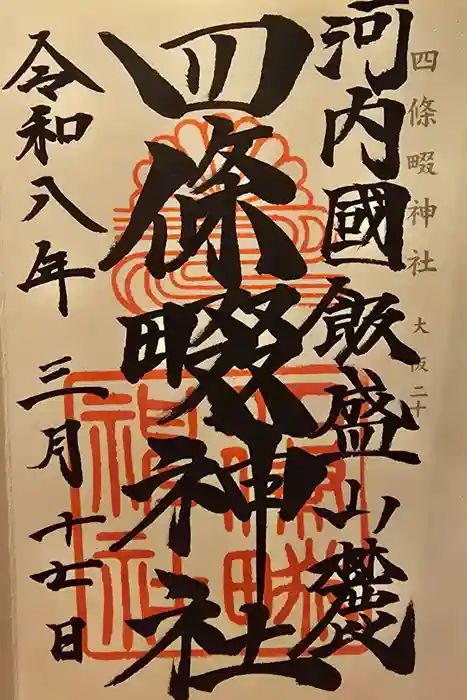 四條畷神社 大阪二十
河内國飯盛山麓
四條畷神社
令和八年 三月十七日
四條畷
神社